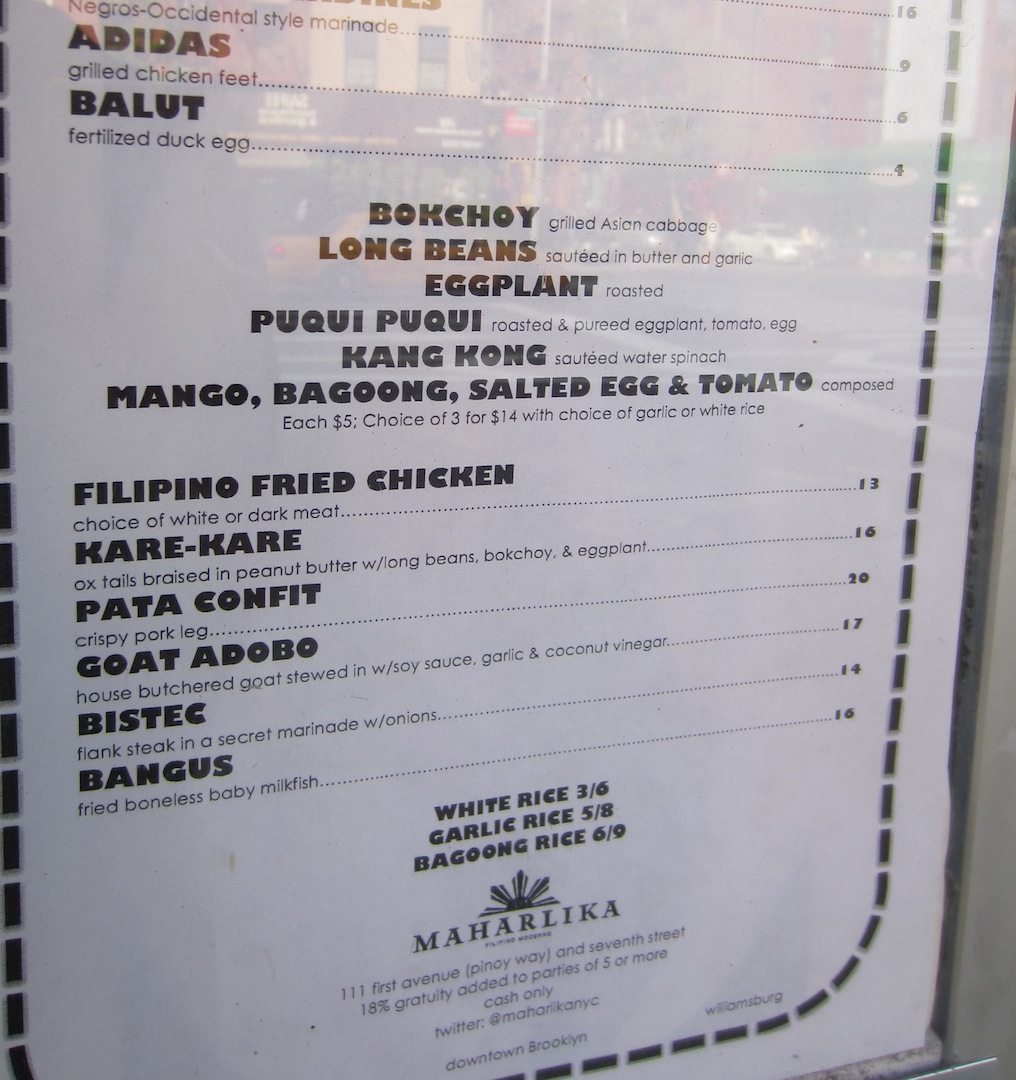 16
Negros-Occidental style marinade.....9
ADIDAS
grilled chicken feet.....6
BALUT
fertilized duck egg.....4
BOKCHOY grilled Asian cabbage
LONG BEANS sautéed in butter and garlic
EGGPLANT roasted
PUQUI PUQUI roasted & pureed eggplant, tomato, egg
KANG KONG sautéed water spinach
MANGO, BAGOONG, SALTED EGG & TOMATO composed
Each $5; Choice of 3 for $14 with choice of garlic or white rice
FILIPINO FRIED CHICKEN
choice of white or dark meat.....13
KARE-KARE
ox tails braised in peanut butter w/long beans, bokchoy, & eggplant.....16
PATA CONFIT
crispy pork leg.....20
GOAT ADOBO
house butchered goat stewed in w/soy sauce, garlic & coconut vinegar.....17
BISTEC
flank steak in a secret marinade w/onions.....14
BANGUS
fried boneless baby milkfish.....16
WHITE RICE 3/6
GARLIC RICE 5/8
BAGOONG RICE 6/9
MAHARLIKA
FILIPINO MODERNO
111 first avenue (pinoy way) and seventh street
18% gratuity added to parties of 5 or more
cash only
twitter: @maharlikanyc
williamsburg
downtown Brooklyn